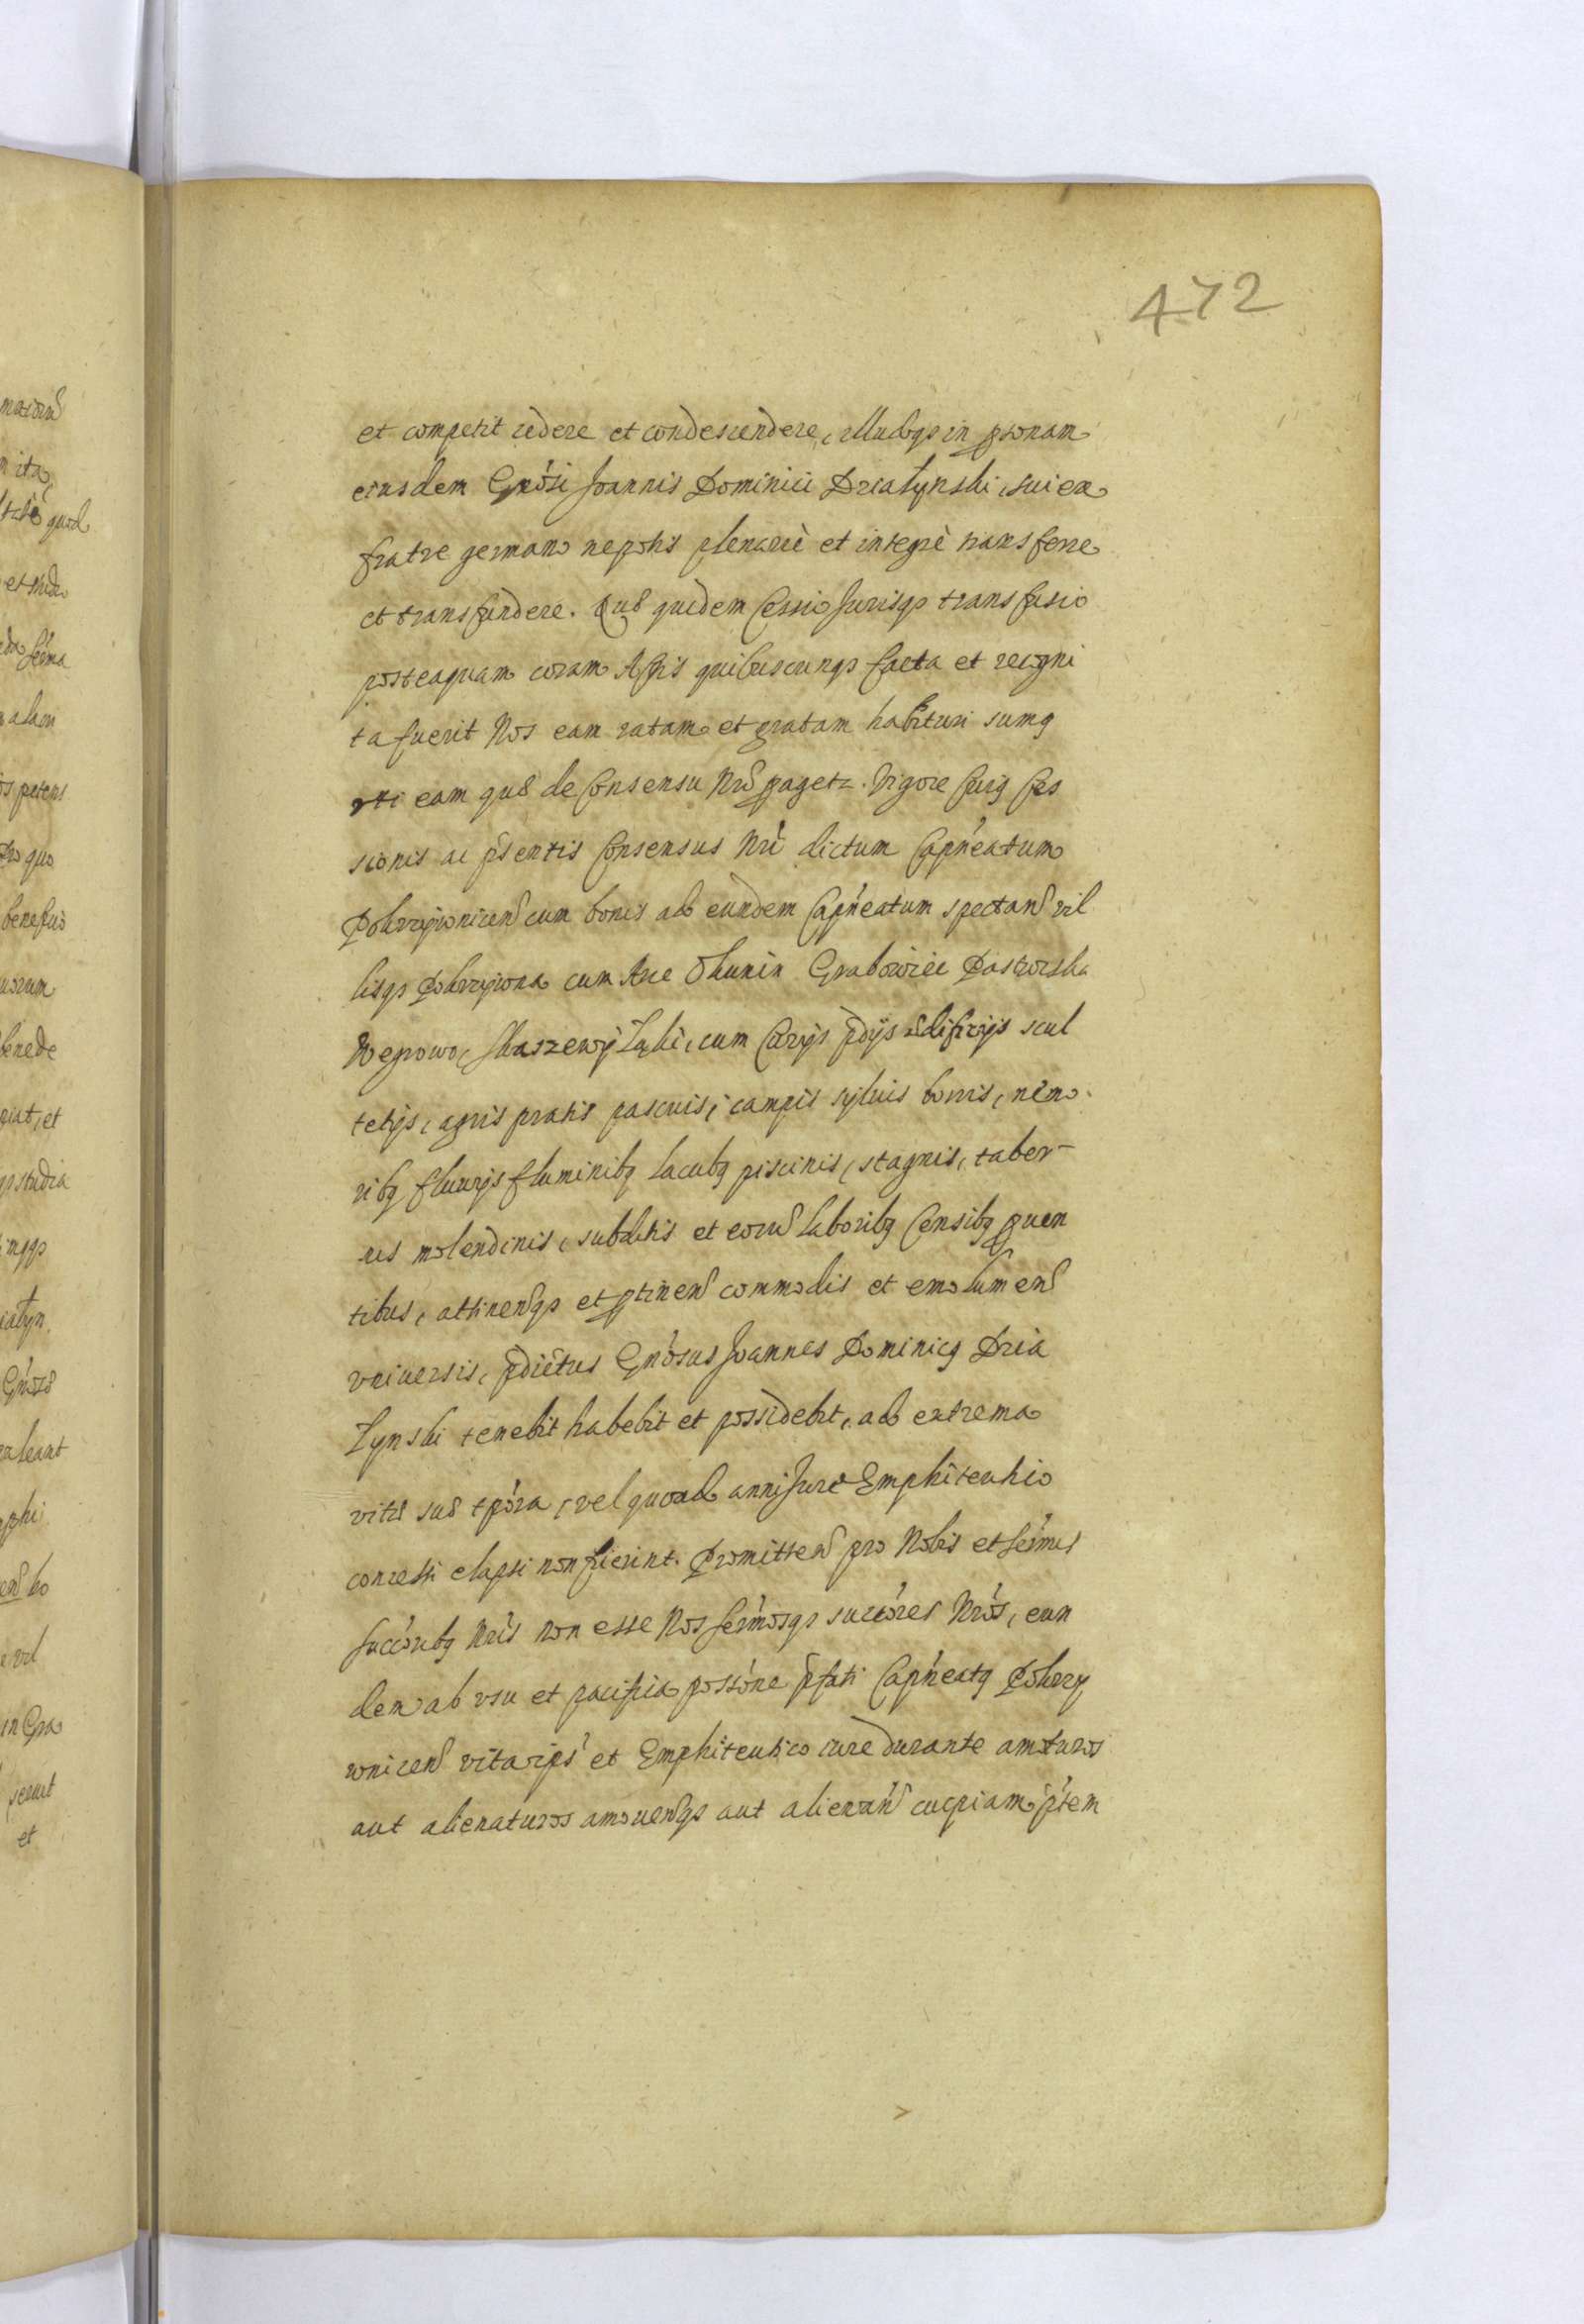 472
et competit cedere et condescendere, illudqȝ in ꝑsonam
eiusdem Gnosi Joannis Dominici Działynski, sui ex
fratre germano nepotis plenariè et integrè transferre
et transfundere. Quæ quidem Cessio Jurisqȝ transfusio
posteaquam coram Actis quibuscunqȝ facta et recogni
ta fuerit Nos eam ratam et gratam habituri sumꝰ
vti eam quæ de Consensu Nro ꝑagetr. Vigore cuiꝰ Ces
sionis ac pñtis Consensus Nri dictum Capneatum
Pokrzywnicen cum bonis ad eundem Capneatum spectan vil
lisqȝ Pokrzywna cum Arce Okunin Grabowiec Pastwiska
Wegrowo, Skaszewy Łąki, cum Curijs pdijs ædificijs scul
tetijs, agris pratis pascuis, campis syluis borris, nemo
ribꝰ fluuijs fluminibꝰ lacubꝰ piscinis, stagnis, taber-
nis molendinis, subditis et eoru laboribꝰ Censibꝰ ꝓuen
tibus, attinenqȝ et ꝑtinen commodis et emolumen
vniuersis, pdictus Gnosus Joannes Dominicꝰ Dzia
łynski tenebit habebit et possidebit, ad extrema
vitæ suæ tpora, vel quoad anni Jure Emphiteutico
concessi elapsi non fuerint. Promitten pro Nobis et Sermis
Succoribꝰ Nris non esse Nos Sermosqȝ succores Nros, eun
dem ab vsu et pacifica possone pfati Capneatꝰ Pokrzy
wnicen vita ips et Emphiteutico iure durante amoturos
aut alienaturos amouenqȝ aut alienan cuipiam ptem